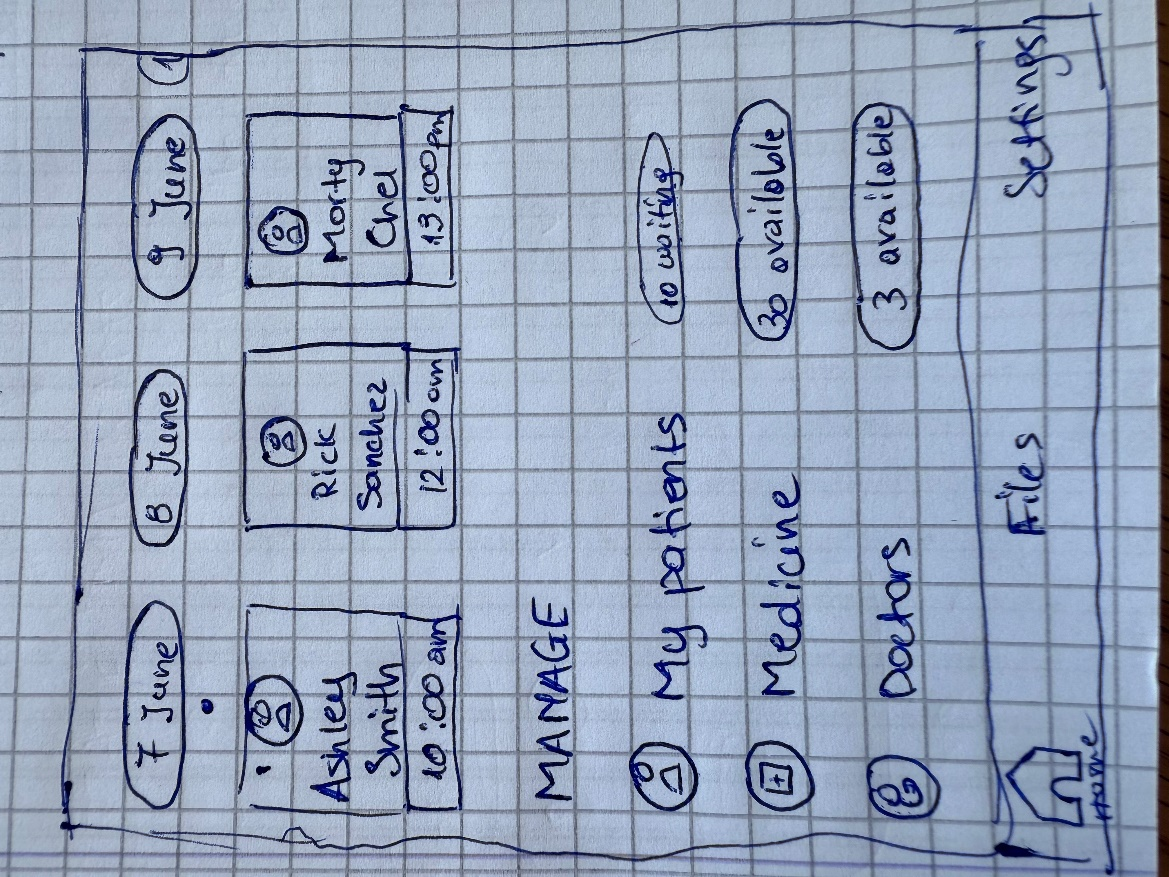 7 June
8 June
9 June
1
Ashley
Smith
10:00 am
Rick
Sanchez
12:00 am
Morty
Chel
13:00 pm
MANAGE
My patients
10 waiting
Medicine
30 available
Doctors
3 available
Home
Files
Settings